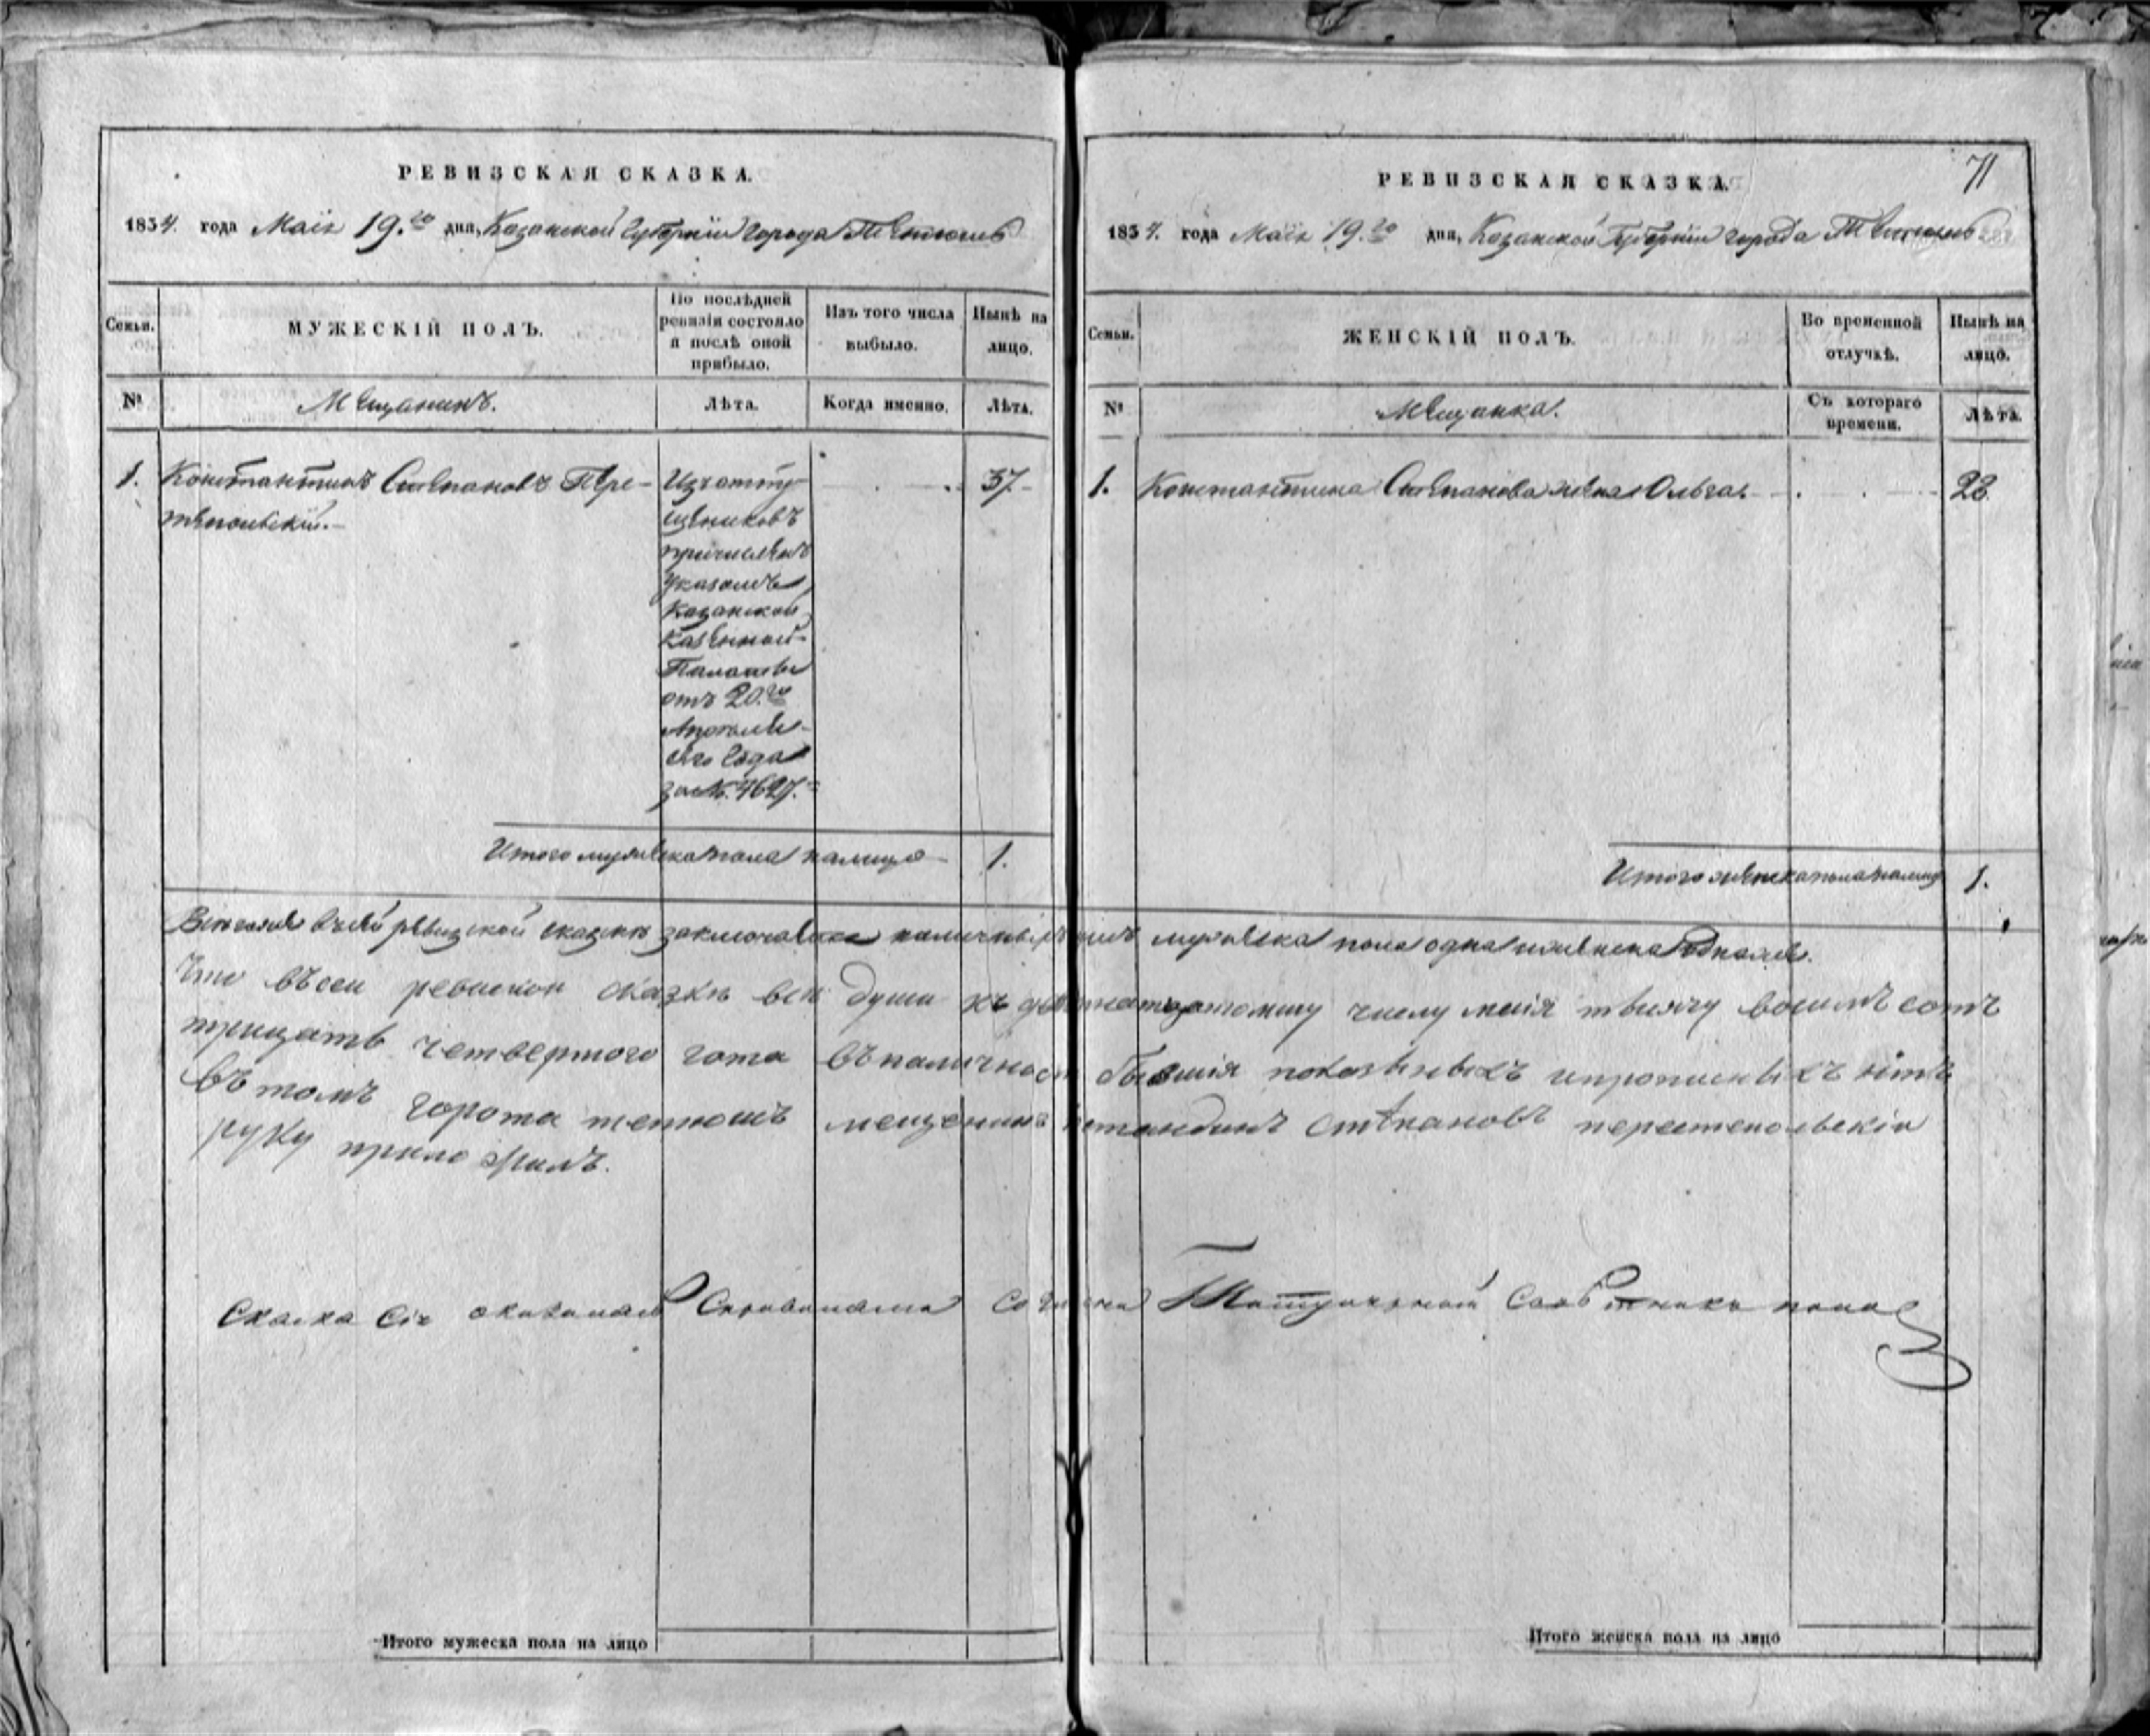 РЕВИЗСКАЯ СКАЗКА.
1834. года Маія 19.го дня, Казанской Губерніи города Тетюшъ
Семьи.
МУЖЕСКІЙ ПОЛЪ.
По послѣдней
ревизіи состояло
и послѣ оной
прибыло.
Изъ того числа
выбыло.
Нынѣ на
лицо.
№
Мещанинъ.
Лѣта.
Когда именно.
Лѣта.
1.
Константинъ Степановъ Пере-
тепольскій.
Изъ отпу-
щениковъ
причисленъ
Указомъ
Казанской
Казенной
Палаты
отъ 20.го
Апреля
сего года
за №. 4627.
37.
Итого мужеска пола налицо
1.
71
РЕВИЗСКАЯ СКАЗКА.
1834. года Маія 19.го дня, Казанской Губерніи города Тетюшъ
Семьи.
ЖЕНСКІЙ ПОЛЪ.
Во временной
отлучкѣ.
Нынѣ на
лицо.
№
Мещанка.
Съ котораго
времени.
Лѣта.
1.
Константина Степанова жена Ольга.
28.
Итого женска пола налицо
1.
Всего въ сей ревизской сказкѣ заключается наличныхъ душъ мужеска пола одна и женска одна
Что въ сеи ревискои сказки все души къ девятнатцатому числу маія тысячу восимъ сотъ
трицать четвертого гота въ наличност бывшія показаны и прописныхъ нѣтъ
въ томъ горота тетюшъ мещенинъ степановъ перетепольскіи
руку приложилъ.
Сказка Сія
Итого мужеска пола на лицо
Итого женска пола на лицо